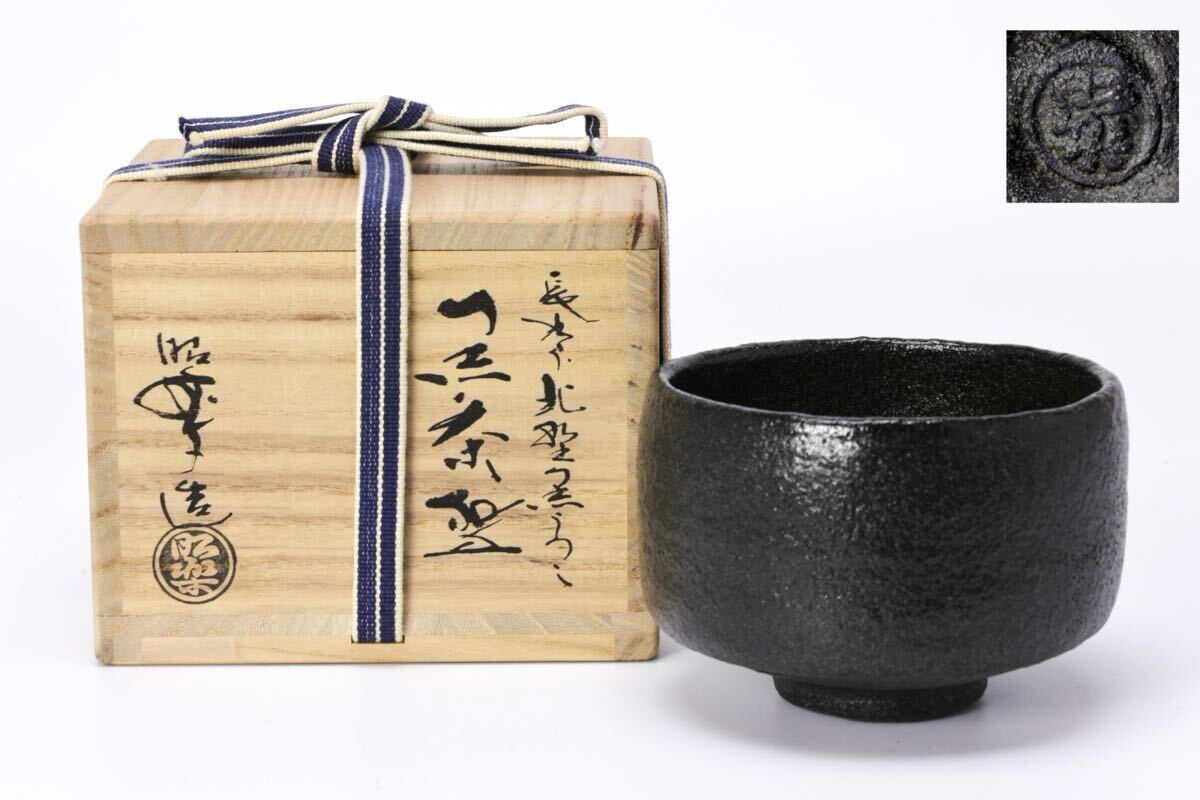 長次郎北野黒うつし
黒茶碗
昭楽造
昭楽
昭楽